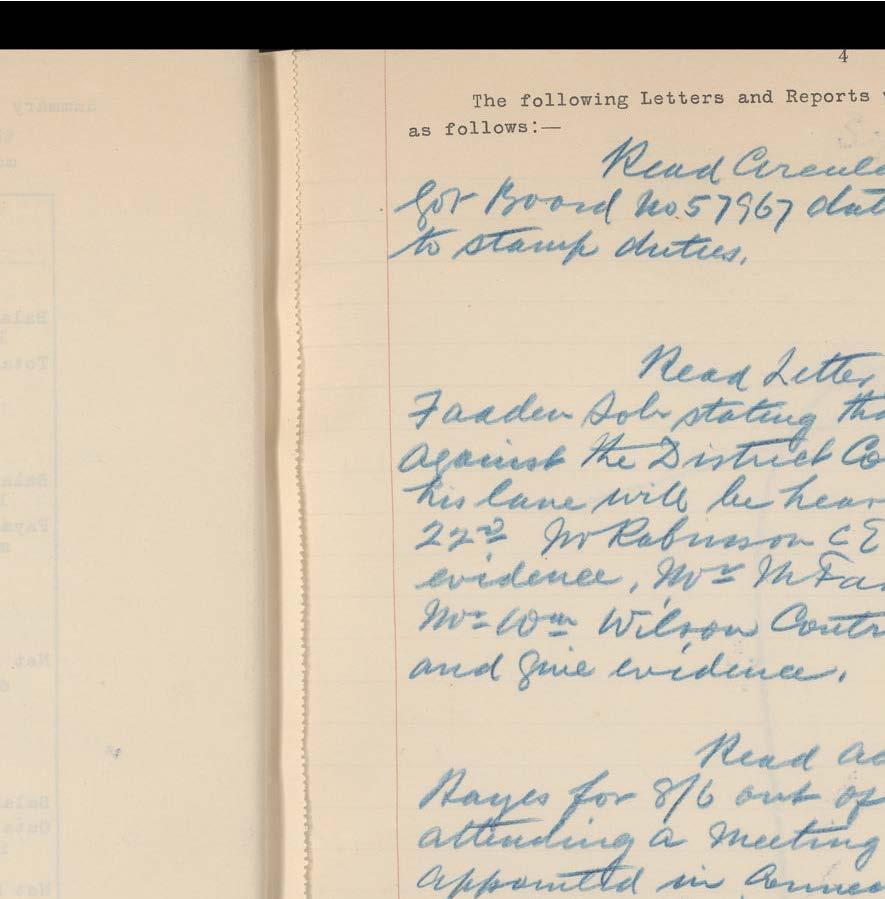 4
The following Letters and Reports
as follows:—
Read Circul
Gov Board No 57967 dat
to stamp duties.
Read Letter
Faaden Solr stating tha
against the District Co
his lane will be hear
22nd Mr Robinson C E
evidence, Mr McFa
Mr Wm Wilson Contr
and give evidence.
Read ac
Hayes for 8/6 out of
attending a Meeting
appointed in Connec